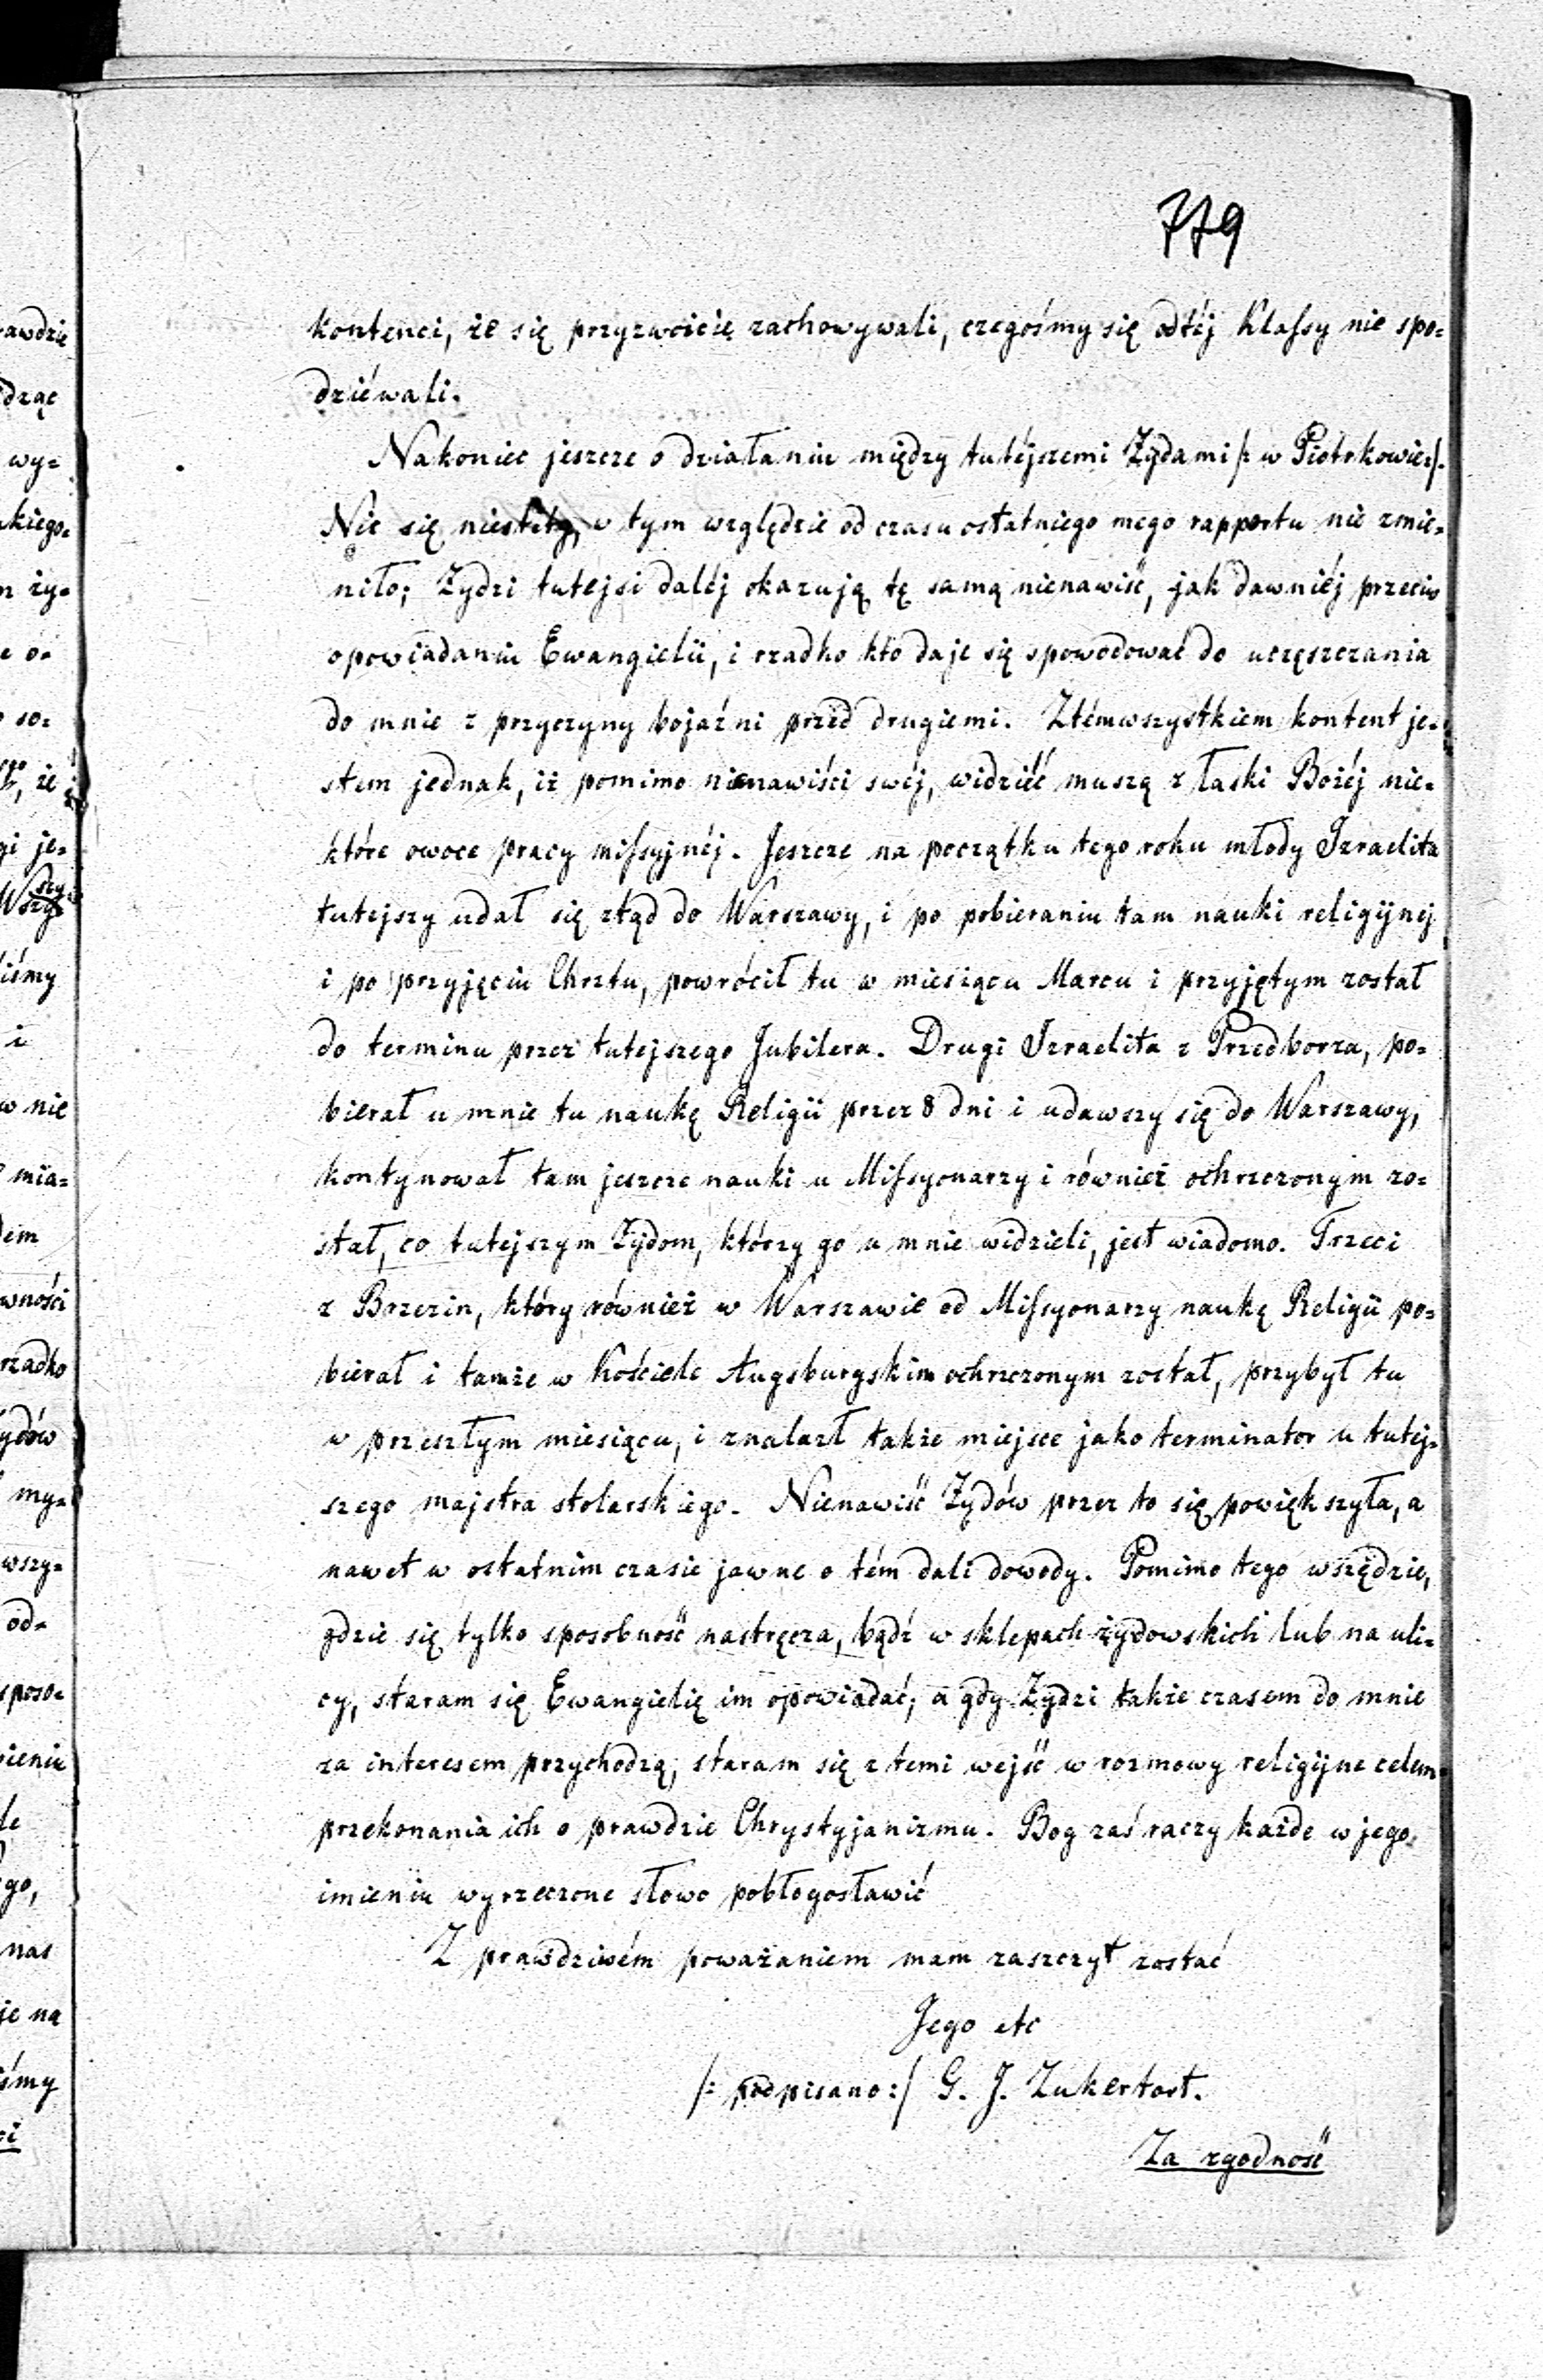 779
kontenci, że się przyzwoicie zachowywali, czegośmy się odtéj Klassy nie spo=
dziéwali.
Nakoniec jeszcze o działaniu między tutéjszemi Żydami /: w Piotrkowie :/.
Nic się niestety, w tym względzie od czasu ostatniego mego rapportu nie zmie=
niło; Żydzi tutejsi daléj okazują tę samą nienawiść, jak dawniéj przeciw
opowiadaniu Ewangielii, i rzadko kto daje się spowodować do uczęszczania
do mnie z przyczyny bojaźni przed drugiemi. Ztémwszystkiem kontent je=
stem jednak, iż pomimo nienawiści swéj, widziéć muszą z łaski Bożéj nie=
które owoce pracy missyjnéj. Jeszcze na początku tego roku młody Izraelita
tutejszy udał się ztąd do Warszawy, i po pobieraniu tam nauki religijnej
i po przyjęciu Chrztu, powrócił tu w miesiącu Marcu i przyjętym został
do terminu przez tutejszego Jubilera. Drugi Izraelita z Przedborza, po=
bierał u mnie tu naukę Religii przez 8 dni i udawszy się do Warszawy,
kontynował tam jeszcze nauki u Missyonarzy i również ochrzczonym zo=
stał, co tutejszym Żydom, którzy go u mnie widzieli, jest wiadomo. Trzeci
z Brzezin, który również w Warszawie od Missyonarzy naukę Religii po=
bierał i tamże w Kościele Augsburgskim ochrzczonym został, przybył tu
w przeszłym miesiącu, i znalazł także miejsce jako terminator u tutej=
szego majstra stolarskiego. Nienawiść Żydów przez to się powiększyła, a
nawet w ostatnim czasie jawne o tém dali dowody. Pomimo tego wszędzie,
gdzie się tylko sposobność nastręcza, bądź w sklepach żydowskich lub na uli=
cy, staram się Ewangielię im opowiadać; a gdy Żydzi także czasem do mnie
za interesem przychodzą, staram się z temi wejść w rozmowy religijne celem
przekonania ich o prawdzie Chrystyjanizmu. Bog zaś raczy każde w jego
imieniu wyrzeczone słowo pobłogosławić
Z prawdziwém poważaniem mam zaszczyt zostać
Jego etc
/: podpisano :/ G. J. Zukertort.
Za zgodność